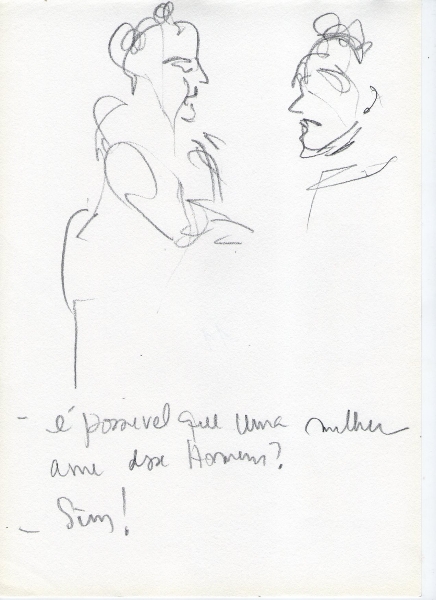 - é possivel que uma mulher
ame dose Homens?
- Sim!